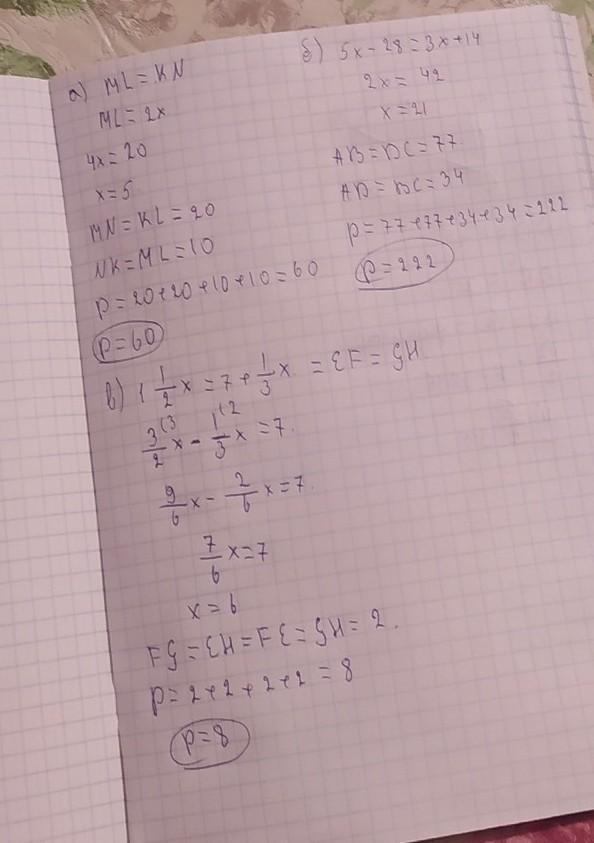 а) ML = KN
ML = 2x
4x = 20
x = 5
MN = KL = 20
NK = ML = 10
P = 20+20+10+10 = 60
P = 60
б) 5x - 28 = 3x + 14
2x = 42
x = 21
AB = DC = 77
AD = BC = 34
P = 77+77+34+34 = 222
P = 222
в) 1 1/2 x = 7 + 1/3 x = EF = GH
3/2 (3 x - 1/3 (2 x = 7.
9/6 x - 2/6 x = 7.
7/6 x = 7
x = 6
FG = EH = FE = GH = 2.
P = 2+2+2+2 = 8
P = 8